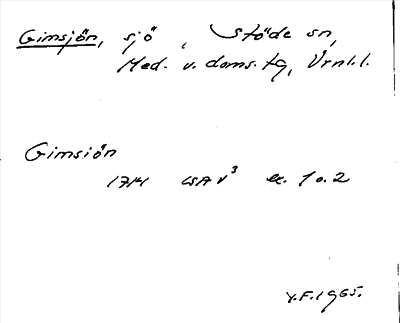 Gimsjön, sjö, Stöde sn,
Med. v. doms. tg, Vrnl.l.
Gimsiön
1714 LSA V³ ex. 1 o. 2
Y.F. 1965.